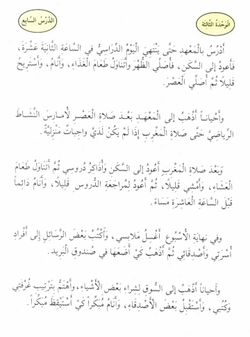 الوَحْدَةُ الثَّالِثَةُ
الدَّرْسُ السَّابِعُ
أَدْرُسُ بِالْمَعْهَدِ حَتَّى يَنْتَهِيَ الْيَوْمُ الدِّرَاسِيُّ فِي السَّاعَةِ الثَّانِيَةَ عَشْرَةَ،
فَأَعُودُ إِلَى السَّكَنِ، فَأُصَلِّي الظُّهْرَ وَأَتَنَاوَلُ طَعَامَ الْغَدَاءِ، وَأَنَامُ، وَأَسْتَرِيحُ
قَلِيلًا ثُمَّ أُصَلِّي الْعَصْرَ.
وَأَحْيَانًا أَذْهَبُ إِلَى الْمَعْهَدِ بَعْدَ صَلَاةِ الْعَصْرِ لِأُمَارِسَ النَّشَاطَ
الرِّيَاضِيَّ إِلَى صَلَاةِ الْمَغْرِبِ إِذَا لَمْ يَكُنْ لَدَيَّ وَاجِبَاتٌ مَنْزِلِيَّةٌ.
وَبَعْدَ صَلَاةِ الْمَغْرِبِ أَعُودُ إِلَى السَّكَنِ وَأُذَاكِرُ دُرُوسِي ثُمَّ أَتَنَاوَلُ طَعَامَ
الْعَشَاءِ، وَأَمْشِي قَلِيلًا، ثُمَّ أَعُودُ لِمُرَاجَعَةِ الدُّرُوسِ قَلِيلًا، وَأَنَامُ دَائِمًا
قَبْلَ السَّاعَةِ الْعَاشِرَةِ مَسَاءً.
وَفِي نِهَايَةِ الْأُسْبُوعِ أَغْسِلُ مَلَابِسِي، وَأَكْتُبُ بَعْضَ الرَّسَائِلِ إِلَى أَفْرَادِ
أُسْرَتِي وَأَصْدِقَائِي ثُمَّ أَذْهَبُ كَيْ أَضَعَهَا فِي صُنْدُوقِ الْبَرِيدِ.
وَأَحْيَانًا أَذْهَبُ إِلَى السُّوقِ لِشِرَاءِ بَعْضِ الْأَشْيَاءِ، وَأَهْتَمُّ بِتَرْتِيبِ غُرْفَتِي
وَكُتُبِي، وَأَسْتَقْبِلُ بَعْضَ الْأَصْدِقَاءِ، وَأَنَامُ مُبَكِّرًا كَيْ أَسْتَيْقِظَ مُبَكِّرًا.